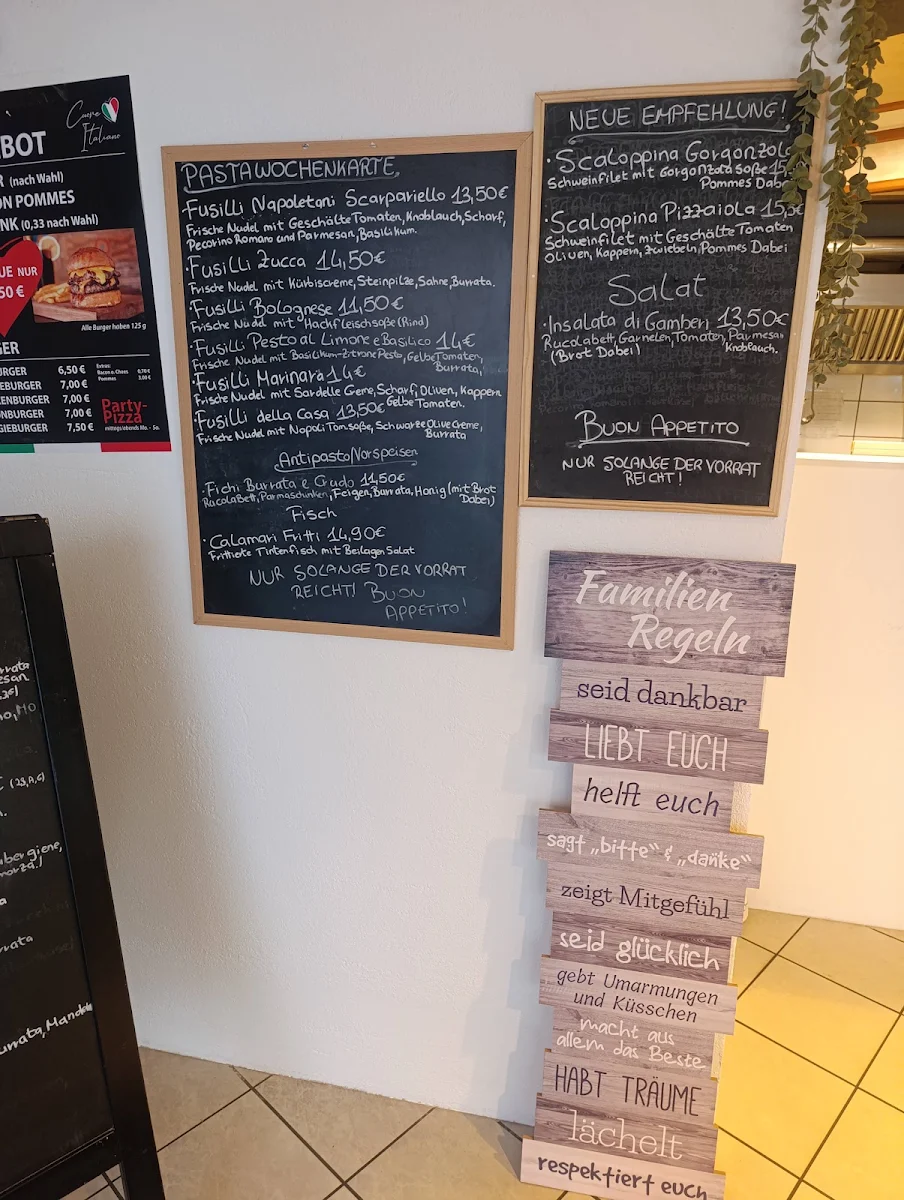 Cuore
Italiano
BOT
(nach Wahl)
ON POMMES
NK (0,33 nach Wahl)
UE NUR
50 €
Alle Burger haben 125 g
GER
BURGER 6,50 €
EBURGER 7,00 €
ENBURGER 7,00 €
ONBURGER 7,00 €
GIEBURGER 7,50 €
Extras:
Bacon o. Chees 0,70 €
Pommes 3,00 €
Party-
Pizza
mittags/abends Mo. - So.
PASTAWOCHENKARTE
Fusilli Napoletani Scarpariello 13,50€
Frische Nudel mit Geschälte Tomaten, Knoblauch, Scharf,
Pecorino Romano und Parmesan, Basilikum.
Fusilli Zucca 14,50€
Frische Nudel mit Kürbiscreme, Steinpilze, Sahne, Burrata.
Fusilli Bolognese 11,50€
Frische Nudel mit Hackfleischsoße (Rind)
Fusilli Pesto al Limone e Basilico 14€
Frische Nudel mit Basilikum-Zitrone Pesto, Gelbe Tomaten,
Burrata,
Fusilli Marinara 14€
Frische Nudel mit Sardelle Creme, Scharf, Oliven, Kappern
Gelbe Tomaten.
Fusilli della Casa 13,50€
Frische Nudel mit Napoli Tom.soße, Schwarze Olive Creme,
Burrata
Antipasto/Vorspeisen
Fichi Burrata e Crudo 11,50€
RucolaBett, Parmaschinken, Feigen, Burrata, Honig (mit Brot
Dabei)
Fisch
Calamari Fritti 14,90€
Frittierte Tintenfisch mit Beilagen Salat
NUR SOLANGE DER VORRAT
REICHT! BUON
APPETITO!
NEUE EMPFEHLUNG!
Scaloppina Gorgonzola
Schweinfilet mit Gorgonzola Soße 15,
Pommes Dabei
Scaloppina Pizzaiola 15,5€
Schweinfilet mit Geschälte Tomaten
Oliven, Kappern, Zwiebeln, Pommes Dabei
Salat
Insalata di Gamberi 13,50€
Rucolabett, Garnelen, Tomaten, Parmesan
Knoblauch.
(Brot Dabei)
BUON APPETITO
NUR SOLANGE DER VORRAT
REICHT!
Familien
Regeln
seid dankbar
LIEBT EUCH
helft euch
sagt „bitte“ & „danke“
zeigt Mitgefühl
seid glücklich
gebt Umarmungen
und Küsschen
macht aus
allem das Beste
HABT TRÄUME
lächelt
respektiert euch
rrata
esan
(23,A,G)
rrata
urrata, Mandeln